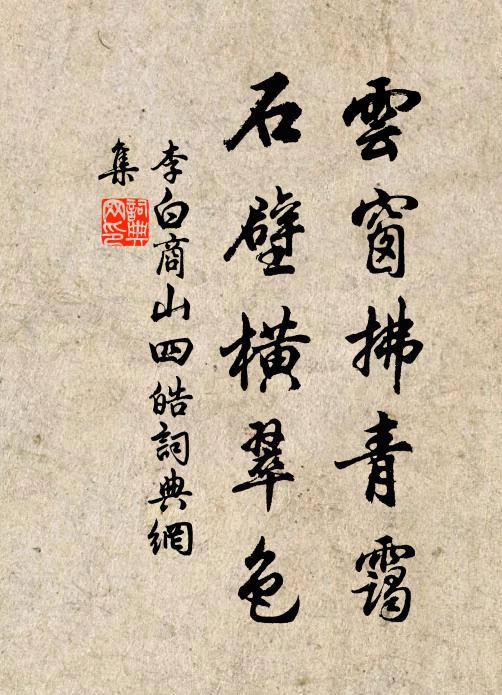 雲窗拂青靄
石壁橫翠色
李白商山四皓詞典網
集
詞典网印